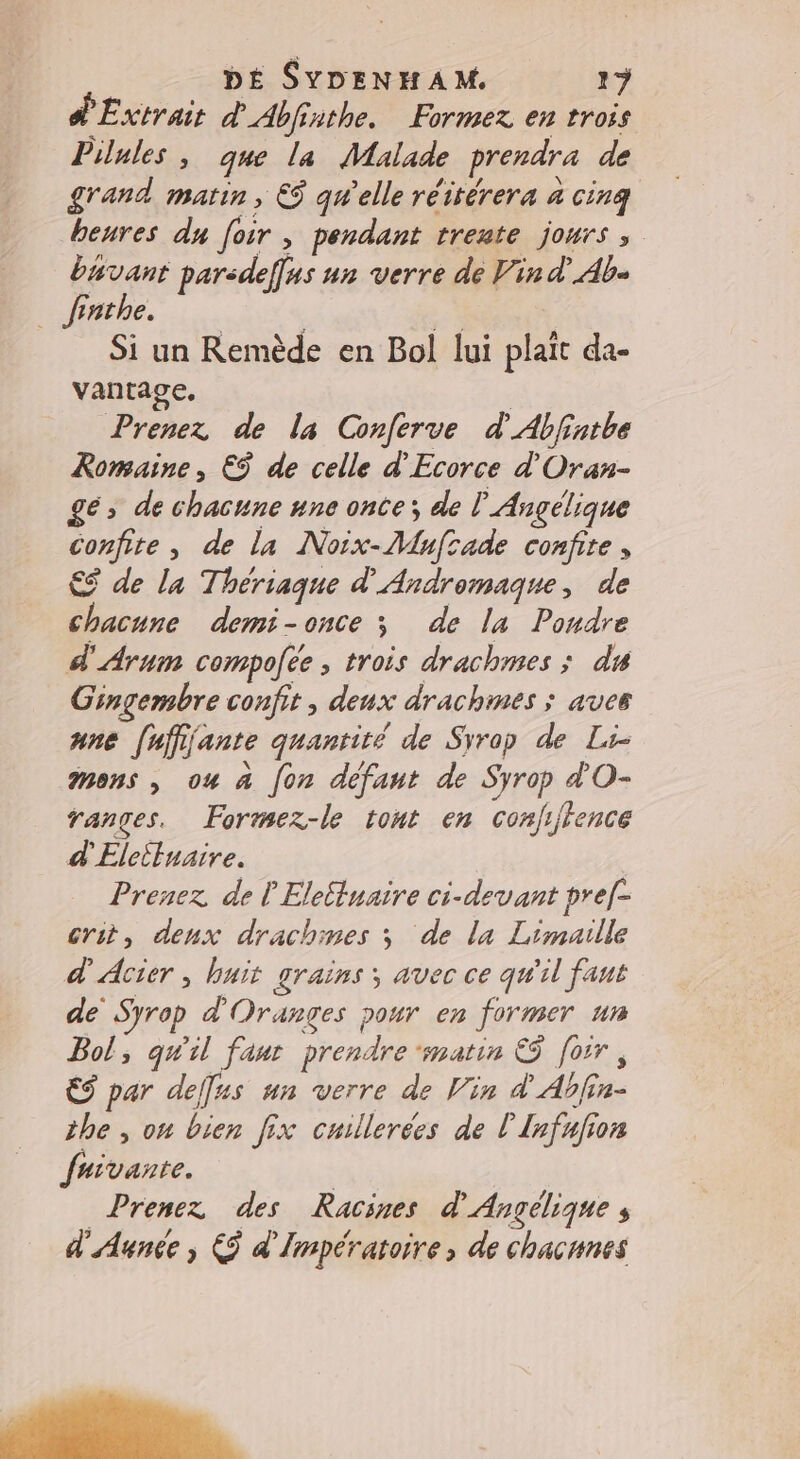 DE SYDENHAM. 17
d'Extrait d'Abſinthe. Formez en trois
Pilules, que la Malade prendra de
grand matin, & qu'elle réitérera à cinq
heures du ſoir, pendant trente jours,
bûvant par-deſſus un verre de Vin d'Ab-
ſinthe.
Si un Remède en Bol lui plaît da-
vantage.
Prenez de la Conſerve d'Abſinthe
Romaine, & de celle d'Ecorce d'Oran-
gé, de chacune une once; de l'Angélique
confite, de la Noix-Muſcade confite,
& de la Thériaque d'Andromaque, de
chacune demi-once; de la Poudre
d'Arum compoſée, trois drachmes; du
Gingembre confit, deux drachmes; avec
une ſuffiſante quantité de Syrop de Li-
mons, ou à ſon défaut de Syrop d'O-
ranges. Formez-le tout en conſiſtence
d'Electuaire.
Prenez de l'Electuaire ci-devant preſ-
crit, deux drachmes; de la Limaille
d'Acier, huit grains; avec ce qu'il faut
de Syrop d'Oranges pour en former un
Bol, qu'il faut prendre matin & ſoir,
& par deſſus un verre de Vin d'Abſin-
the, ou bien ſix cuillerées de l'Infuſion
ſuivante.
Prenez des Racines d'Angélique,
d'Aunée, & d'Impératoire, de chacunes